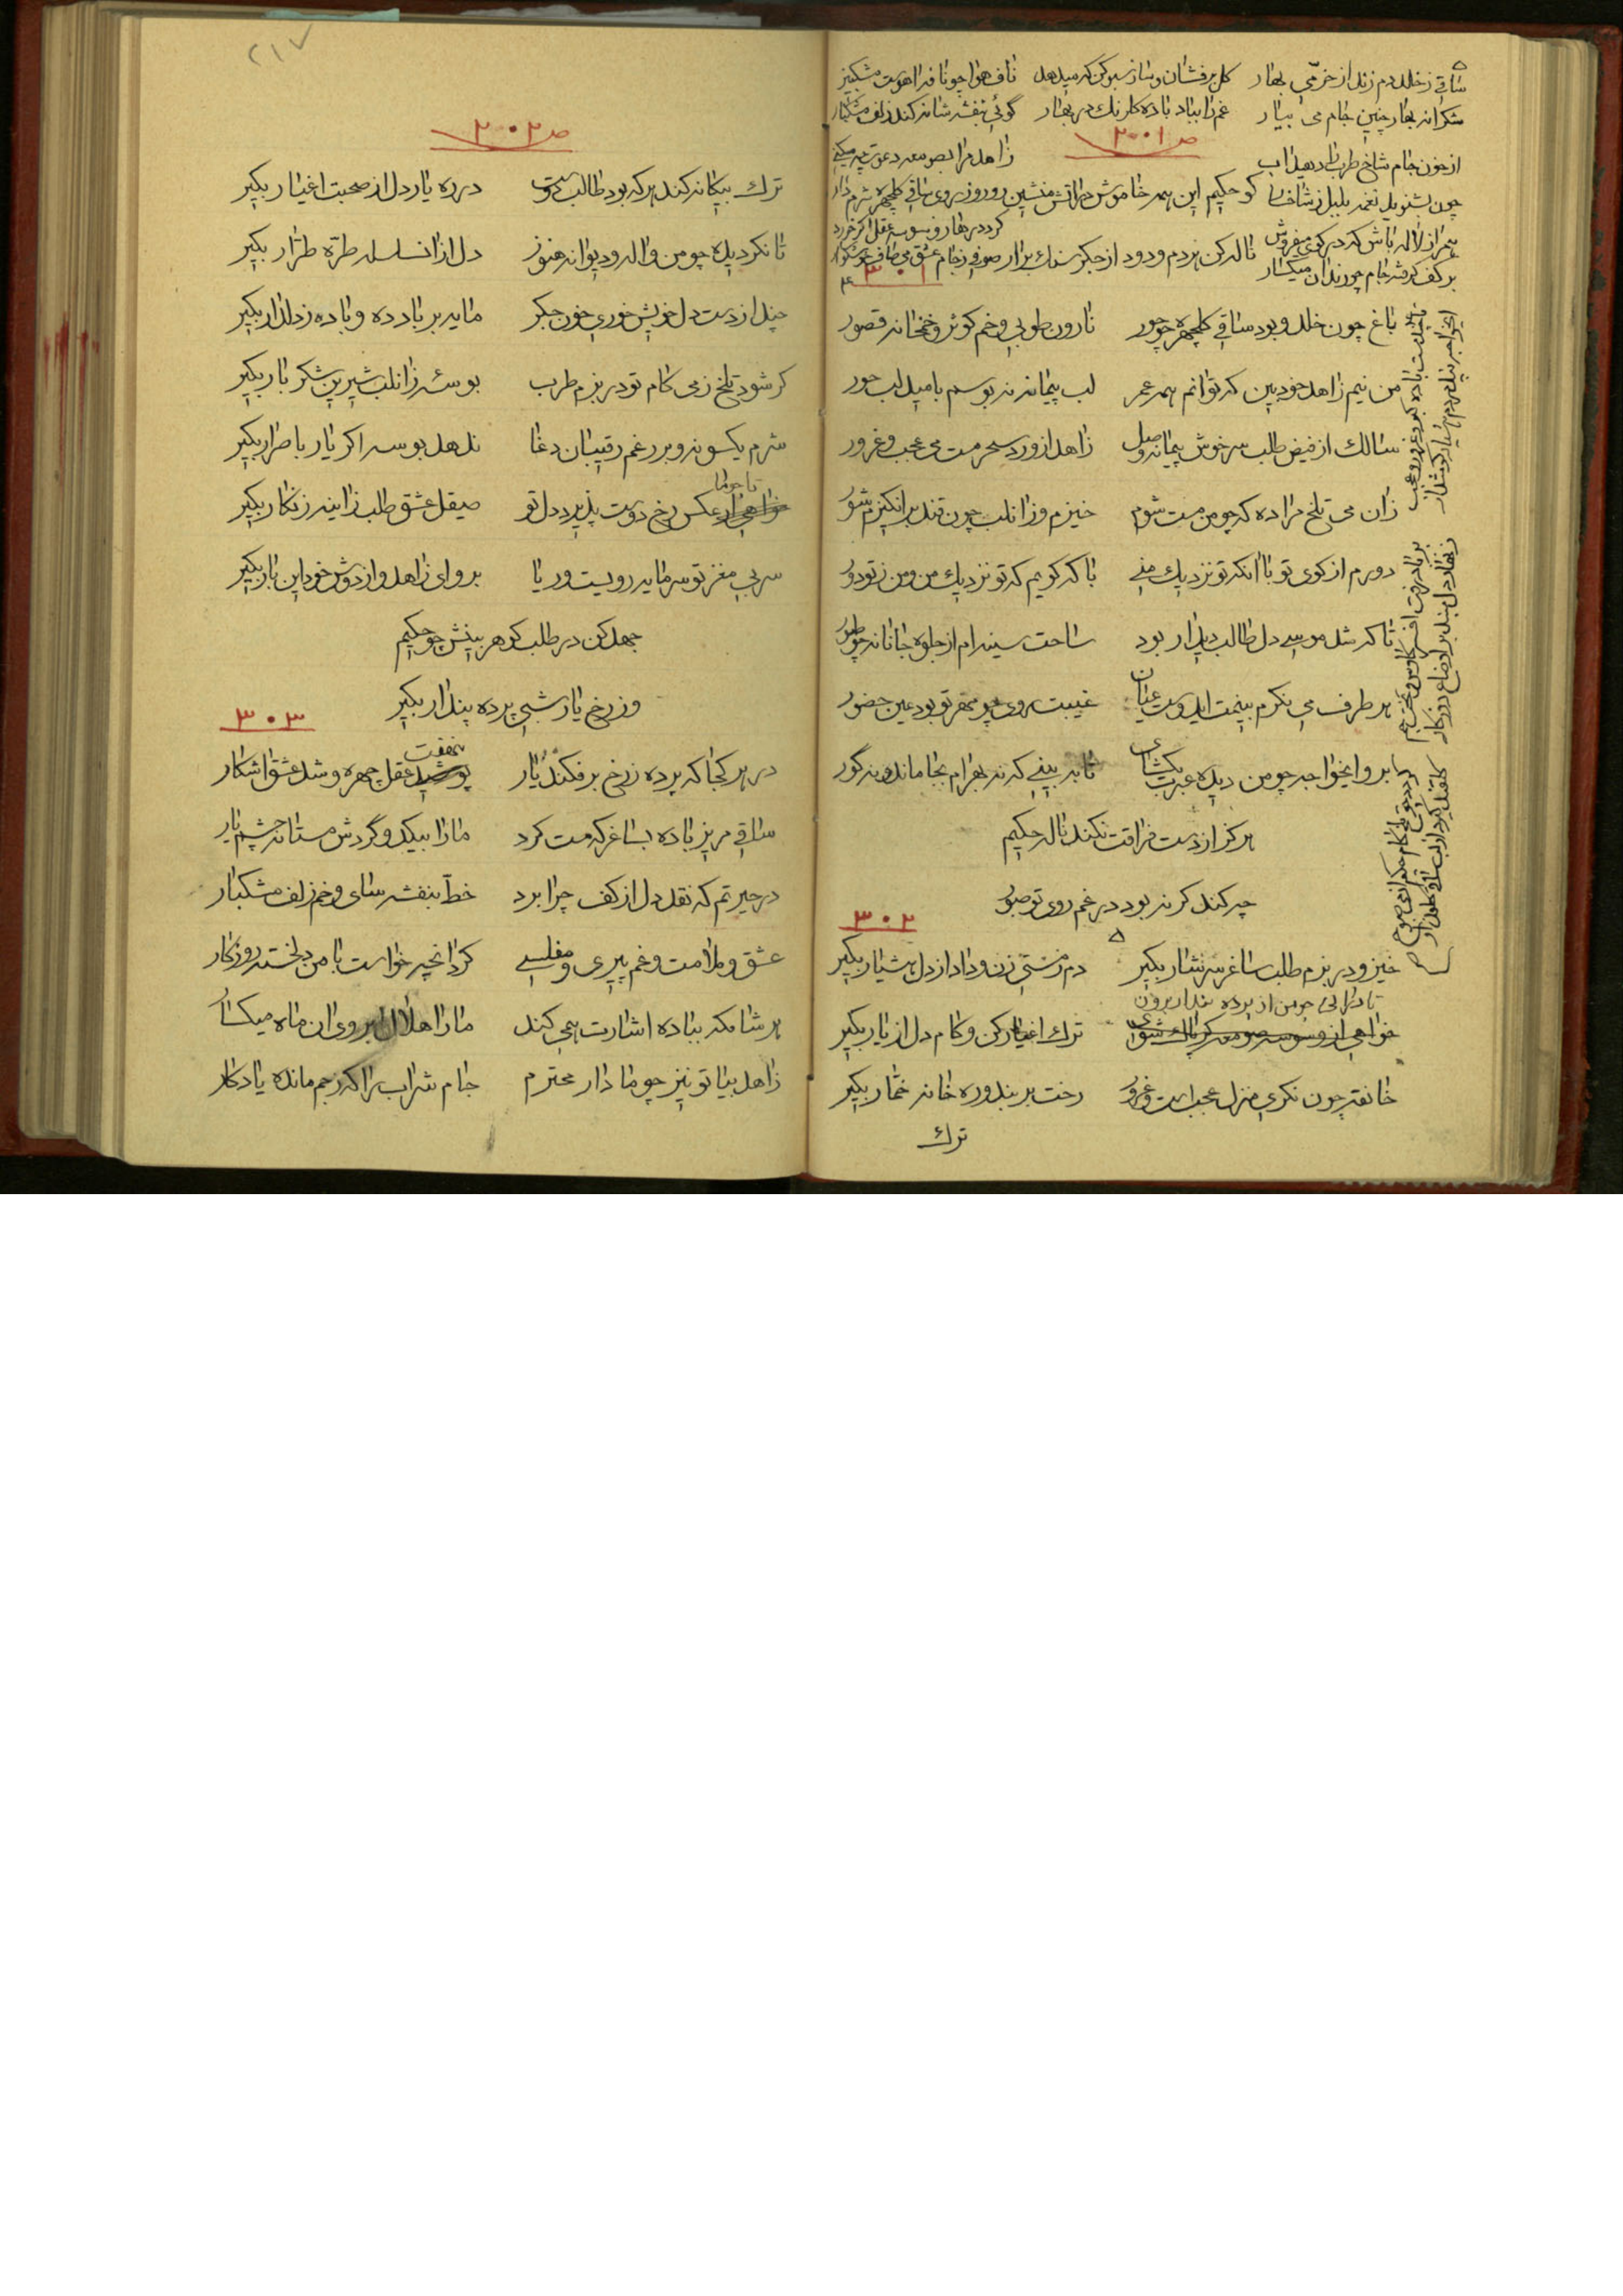 ساقی ز خلد دم زند از خرمی بهار
کل برفشان و ساز سبو کن که میدهد
ناف هوا چو نافه اهوست مشکبیز
شکرانه بهار چنین جام می بیار
غم را بباد باده کلرنک در بهار
گوئی بنفشه شانه کند زلف مشکبار
ص ۳۰۰۱
از خون جام شاخ طرب را دهید اب
زاهد مرا بصومعه دعوت چه میکنی
چون بشنوید نغمه بلبل ز شاخسا
کو حکیم این همه خاموش در اتش منشین
رو روز روی ساقی کلچهره شرم دار
همراز لاله باش که در کوی میفروش
ناله کن هر دم و دود از جکر سنك برار
بر کف کرفته جام چو رندان میکسار
صوفی ز جام عشق می صاف خوشکوار
۳۰۱
باغ چون خلد و بود ساقی کلچهره چو حور
نارون طوبی و خم کوثر و خمخانه قصور
من نیم زاهد خود بین که توانم همه عمر
لب پیمانه نبوسم بامید لب حور
سالك از فیض طلب سرخوش پیمانه وصل
زاهد از ورد سحر مست می عجب و غرور
زان می تلخ مرا ده که چو من مست شوم
خیزم و زان لب چون قند برانکیزم شور
دورم از کوی تو با انکه تو نزدیك منی
با که کویم که تو نزدیك من و من ز تو دور
تا که شد موسی دل طالب دیدار بود
ساحت سینه ام از جلوه جانانه چو طور
هر طرف می نکرم بینمت ایدوست عیان
غیبت روی چو مهر تو بود عین حضور
برو ایخواجه چو من دیده عبرت بکشای
تا ببینی که نه بهرام بجا ماند و نه گور
هرکز از دست فراقت نکند ناله حکیم
چه کند کر نبود در غم روی تو صبور
۳۰۲
خیز و در بزم طلب ساغر سرشار بکیر
دم ز مستی زن و داد از دل هشیار بکیر
تا درائی چو من از پرده پندار برون
خواهی از وسوسه صومعه کر پاك شوی
ترك اغیار کن و کام دل از یار بکیر
خانقه چون نکری منزل عجب است و غرور
رخت بر بند و ره خانه خمار بکیر
ترك
۲۱۷
ص ۳۰۰۲
ترك بیکانه کند هر که بود طالب دوست
در ره یار دل از صحبت اغیار بکیر
تا نکردیده چو من واله و دیوانه هنوز
دل از ان سلسله طره طرار بکیر
چند از دست دل خویش خوری خون جکر
مایه بر باد ده و باده ز دلدار بکیر
کر شود تلخ ز می کام تو در بزم طرب
بوسه زان لب شیرین شکر بار بکیر
شرم یکسو نه و بر رغم رقیبان دغا
ندهد بوسه اکر یار باصرار بکیر
تا چو ما
خواهی ار عکس رخ دوست پذیرد دل تو
صیقل عشق طلب زاینه زنکار بکیر
سر بی مغز تو سرمایه رویست و ریا
برو ای زاهد و از دوش خود این بار بکیر
جهد کن در طلب کوهر بینش چو حکیم
وز رخ یار شبی پرده پندار بکیر
۳۰۳
در هر کجا که پرده ز رخ برفکند یار
بنهفت
پوشید عقل چهره و شد عشق اشکار
ساقی مریز باده بساغر که مست کرد
ما را بیك دو گردش مستانه چشم یار
در حیرتم که نقد دل از کف چرا برد
خط بنفشه سای و خم زلف مشکبار
عشق و ملامت و غم پیری و مفلسی
کرد انچه خواست با من دلخسته روزکار
هر شامکه بباده اشارت همی کند
ما را هلال ابروی ان ماه میکسا
زاهد بیا تو نیز چو ما دار محترم
جام شراب را که ز جم مانده یادکار